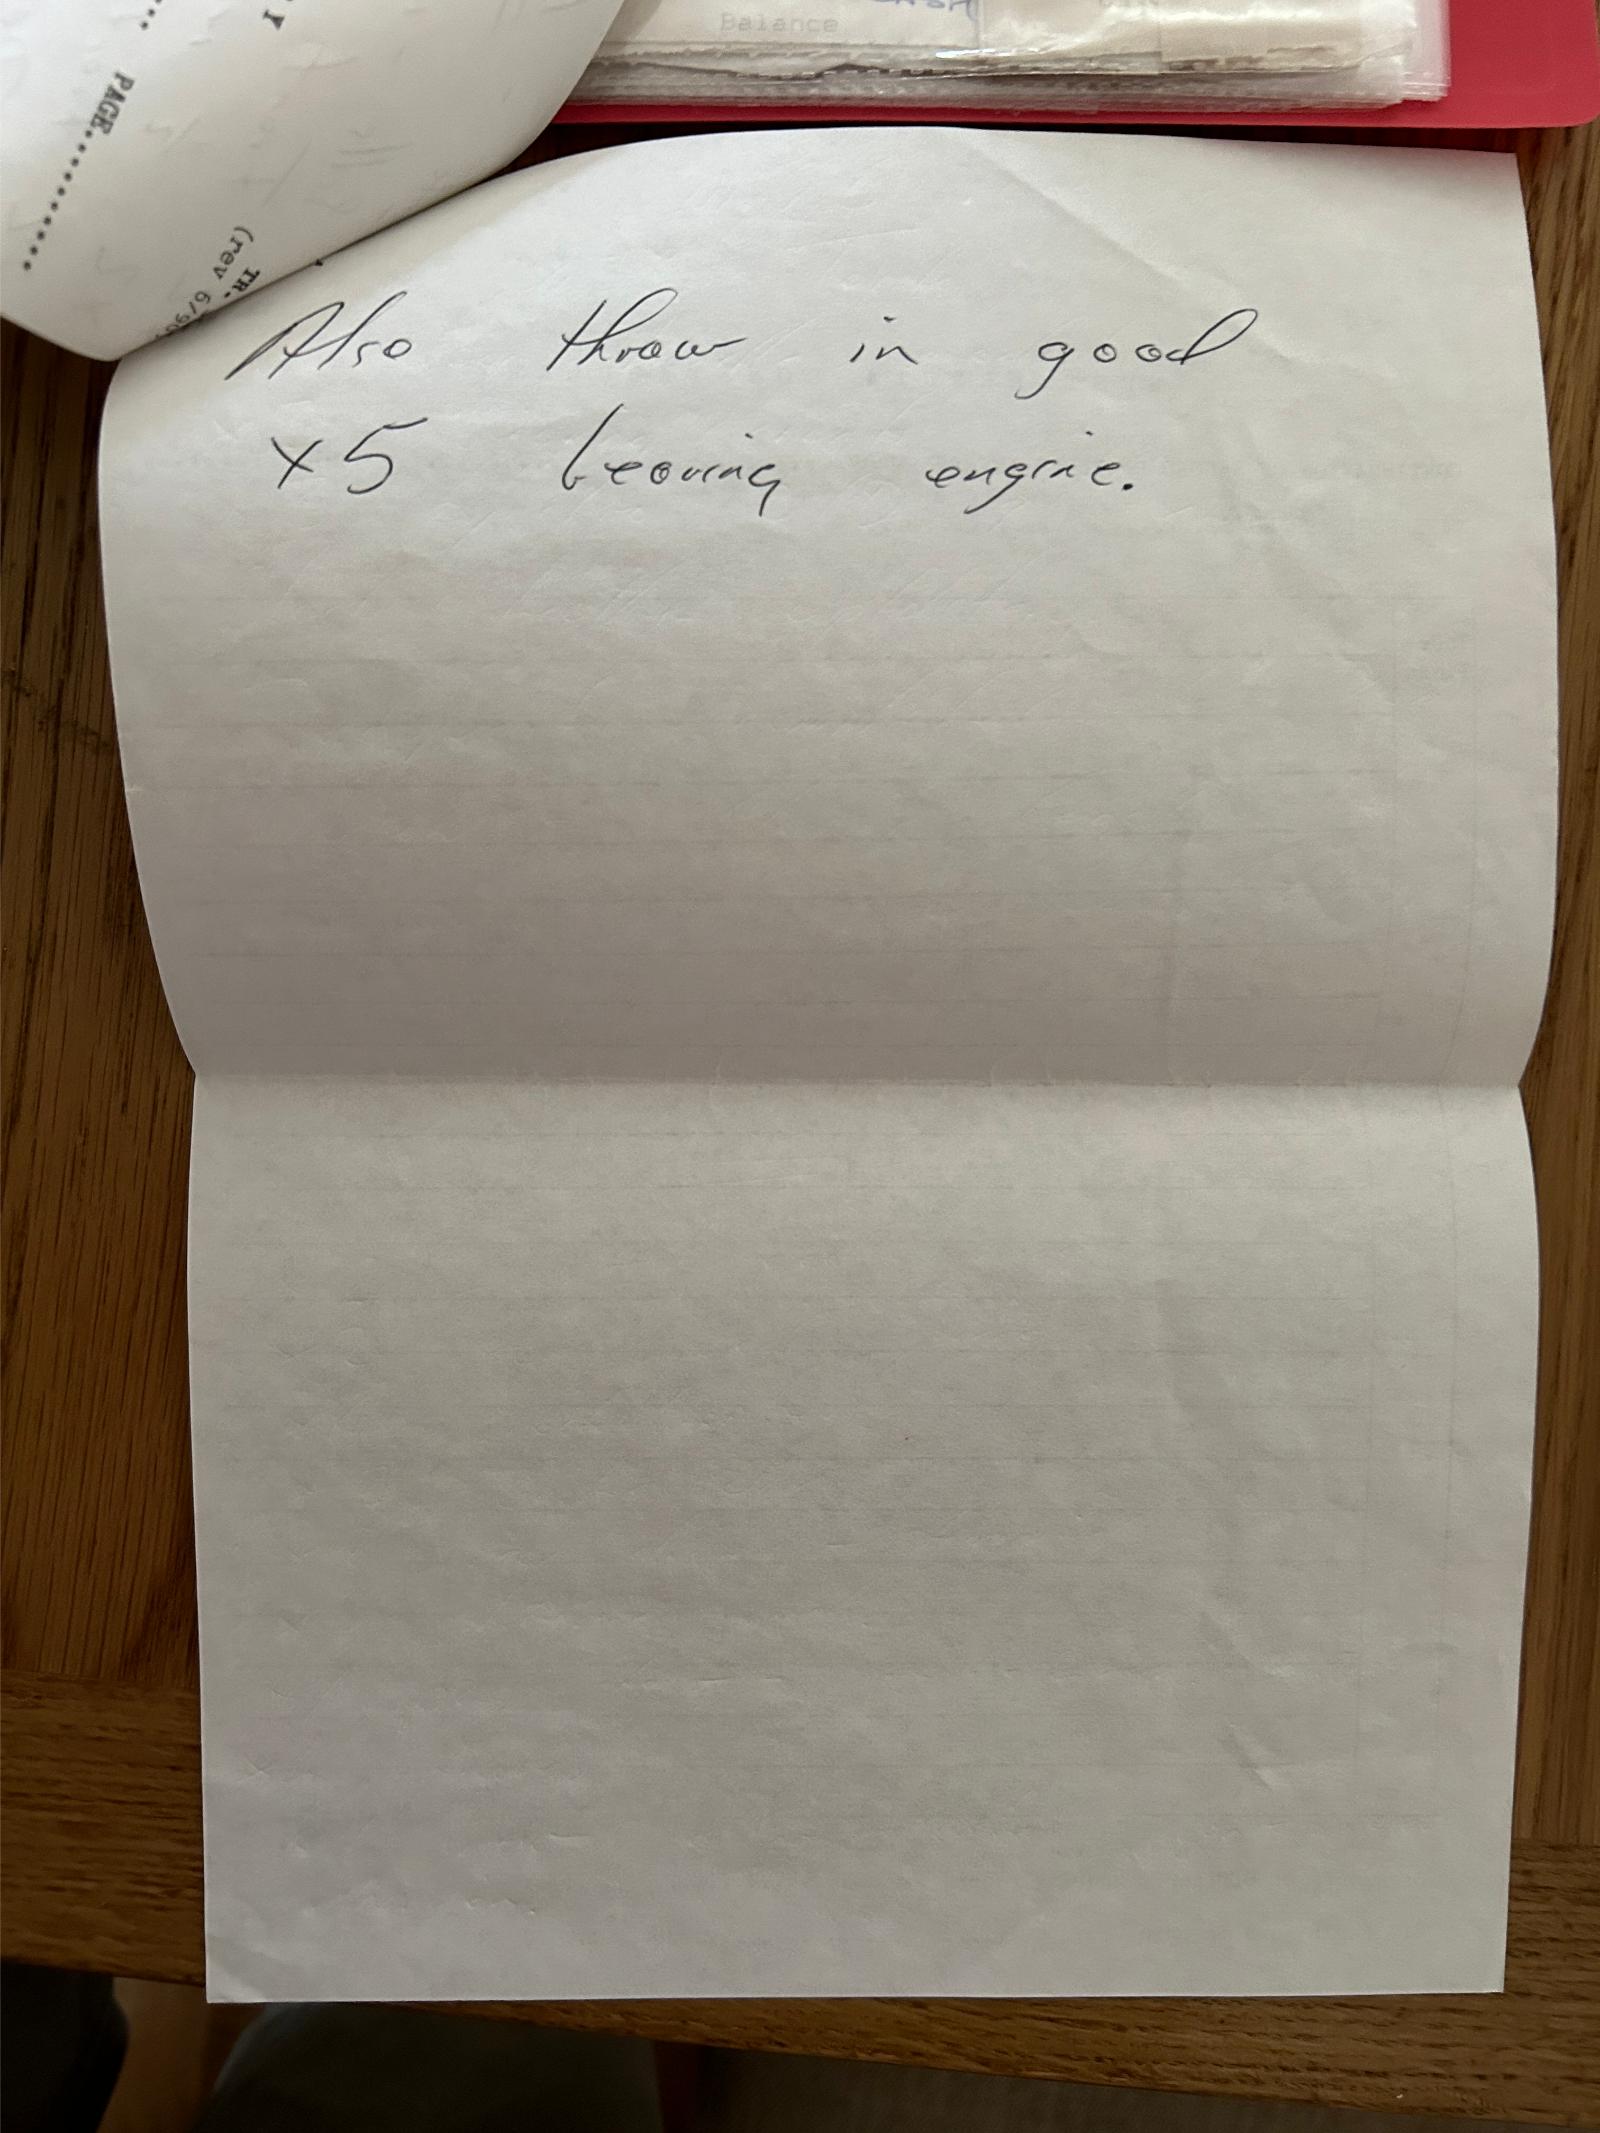 Balance
PAGE..........
TR.
(rev 6/90
Also throw in good
x5 bearing engine.